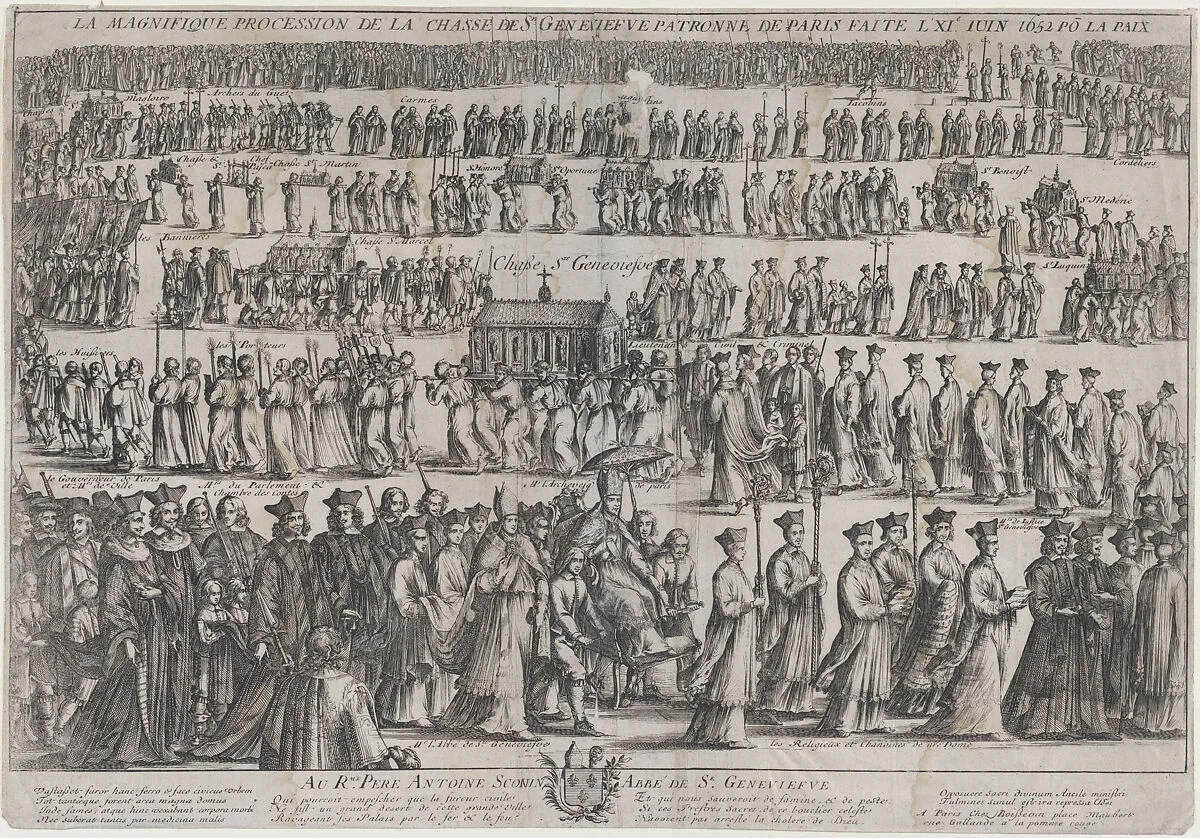 LA MAGNIFIQUE PROCESSION DE LA CHASSE DE Ste GENEVIEFVE PATRONNE DE PARIS FAITE L'XIe IUIN 1652 PO LA PAIX
Chasses
Magloire
Archers du Guet
Carmes
Iacobins
Cordeliers
Chasse
Chasse St Martin
S. Honoré
Ste Oportune
St Benoist
St Mederic
les Bannieres
Chasse St Marcel
Chasse Ste Geneviefve
les Huissiers
les Porteurs
Lieutenan Civil & Criminel
le Gouverneur de Paris
et Mrs de Ville
Mrs du Parlement &
Chambre des Contes
Mr l'Archevesq de paris
Mrs de Iustice
Mr l'Abbé de Ste Geneviefve
les Religieux et Chanoines de nre Dame
AU Rme PERE ANTOINE SCONIN ABBÉ DE Ste GENEVIEFVE
Vastasset furor hanc, ferro et face civicus urbem
Tot tantisque forent area magna domus
Inde fames, atque hinc vexabant corpora morbi
Nec suberat tantis par medicina malis
Qui pourroit empescher que la fureur ciuile
Ne fist un grand desert de cette grande Ville
Ravageant ses Palais par le fer & le feu
Et qui nous sauveroit de famine, & de peste
Si ces Prestres Sacrez d'un bouclier celeste
N'avoient pas arresté la cholere de Dieu
Opposuere sacri divinum Ancile ministri
Fulmine simul
A Paris Chez Boissevin place Maubert
rue Gallande a la pomme rouge